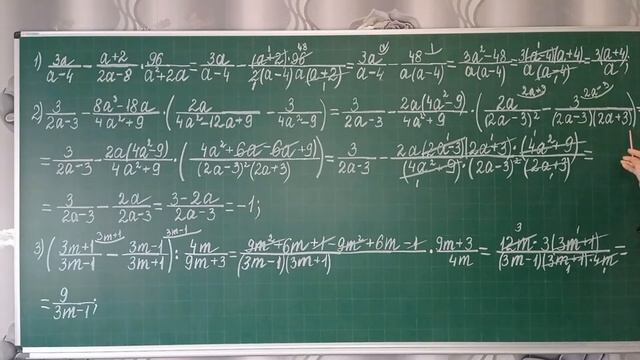 1) 3a/(a-4) - (a+2)/(2a-8) · 96/(a²+2a) = 3a/(a-4) - ((a+2)·96)/(2(a-4)a(a+2)) = 3a/(a-4) - 48/(a(a-4)) = (3a²-48)/(a(a-4)) = (3(a-4)(a+4))/(a(a-4)) = 3(a+4)/a;
2) 3/(2a-3) - (8a³-18a)/(4a²+9) · (2a/(4a²-12a+9) - 3/(4a²-9)) = 3/(2a-3) - (2a(4a²-9))/(4a²+9) · (2a/(2a-3)² - 3/((2a-3)(2a+3)))
= 3/(2a-3) - (2a(4a²-9))/(4a²+9) · ((4a²+6a-6a+9)/((2a-3)²(2a+3))) = 3/(2a-3) - (2a(2a-3)(2a+3)·(4a²+9))/((4a²+9)·(2a-3)²(2a+3)) =
= 3/(2a-3) - 2a/(2a-3) = (3-2a)/(2a-3) = -1;
3) ((3m+1)/(3m-1) - (3m-1)/(3m+1)) : 4m/(9m+3) = (9m²+6m+1-9m²+6m-1)/((3m-1)(3m+1)) · (9m+3)/4m = (12m·3(3m+1))/((3m-1)(3m+1)·4m) =
= 9/(3m-1);